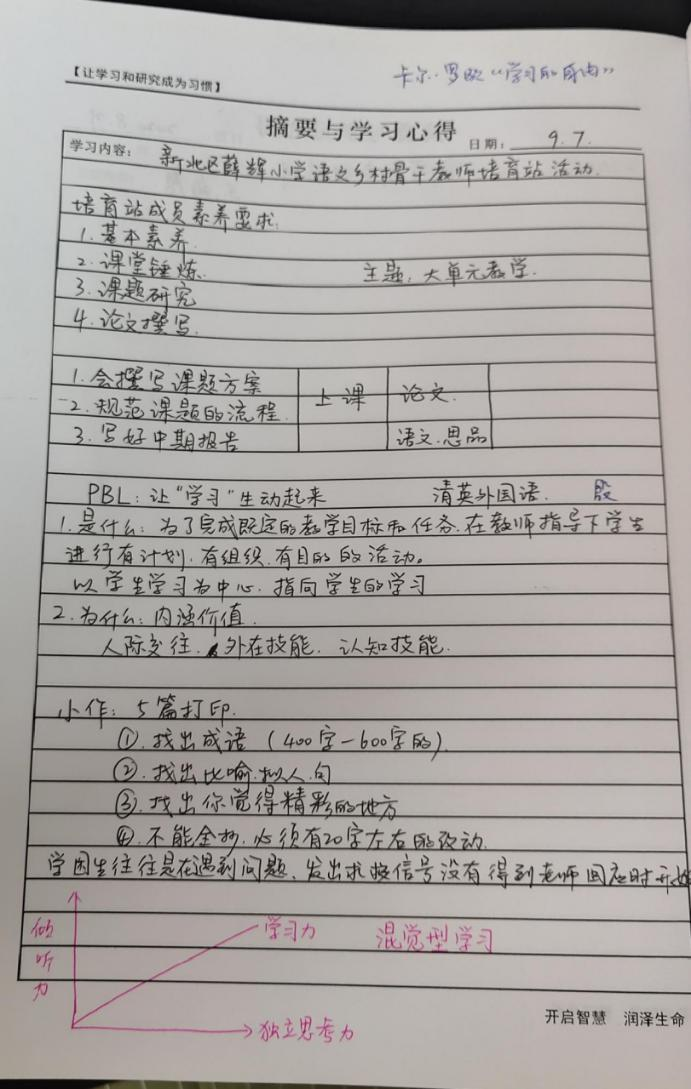 【让学习和研究成为习惯】
卡尔·罗杰"学习的自由"
摘要与学习心得
日期: 9.7.
学习内容: 新北区薛辉小学语文乡村骨干教师培育站活动.
培育站成员素养要求.
1.基本素养.
2.课堂锤炼. 主题:大单元教学.
3.课题研究
4.论文撰写.
1.会撰写课题方案 上课 论文.
2.规范课题的流程.
3.写好中期报告 语文.思品
PBL:让"学习"生动起来 清英外国语. 殷
1.是什么:为了完成既定的教学目标和任务.在教师指导下学生
进行有计划.有组织.有目的的活动。
以学生学习为中心.指向学生的学习
2.为什么:内涵价值.
人际交往. 外在技能. 认知技能.
小作: 5篇打印.
①.找出成语 (400字-600字的).
②.找出比喻.拟人.句
③.找出你觉得精彩的地方
④.不能全抄.必须有20字左右的改动.
学困生往往是在遇到问题、发出求救信号没有得到老师回应时开始
倾听力
学习力 混觉型学习
独立思考力
开启智慧 润泽生命